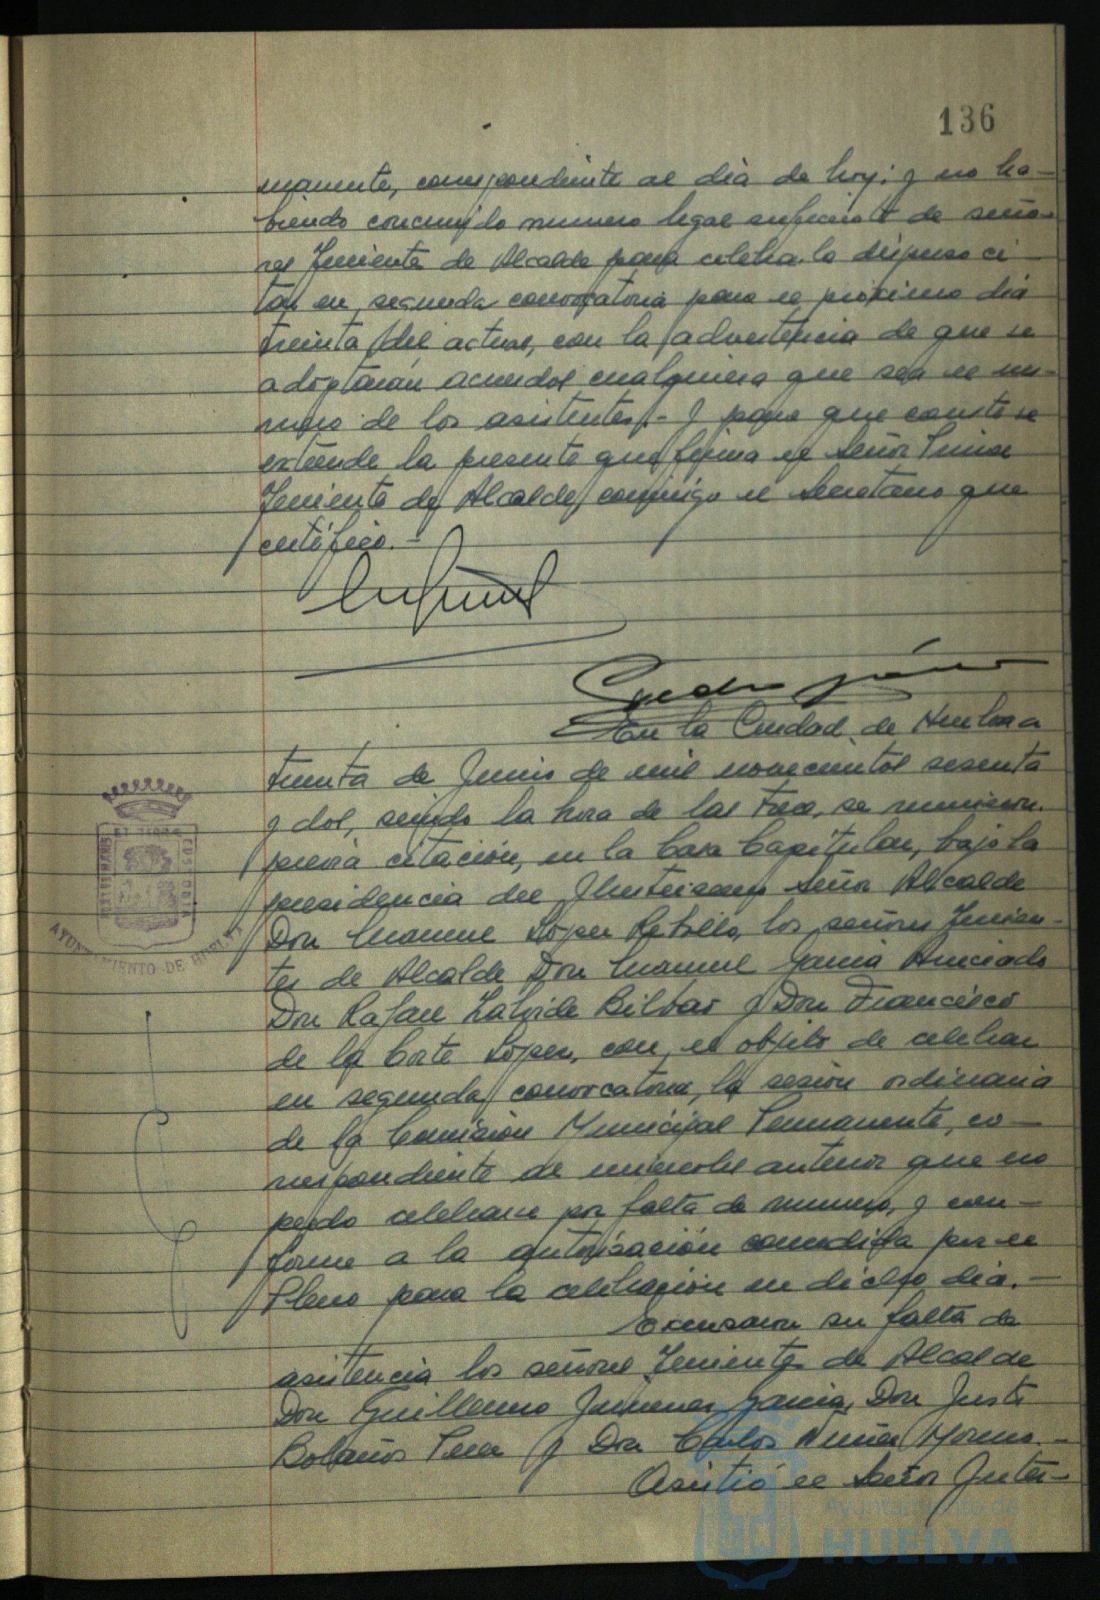 136
manente, correspondiente al día de hoy; y no ha-
biendo concurrido numero legal suficiente de seño-
res Teniente de Alcalde para celebrarla dispuso ci-
tar en segunda convocatoria para el próximo día
treinta del actual, con la advertencia de que se
adoptarán acuerdos cualquiera que sea el nu-
mero de los asistentes.- Y para que conste se
extiende la presente que firma el Señor Primer
Teniente de Alcalde conmigo el Secretario que
certifico.-
En la Ciudad de Huelva a
treinta de Junio de mil novecientos sesenta
y dos, siendo la hora de las trece, se reunieron
previa citación, en la Casa Capitular, bajo la
presidencia del Ilustrisimo Señor Alcalde
Don Manuel López Rebollo, los señores Tenien-
tes de Alcalde Don Manuel Garcia Anciado
Don Rafael Laborde Bilbao y Don Francisco
de la Corte López, con el objeto de celebrar
en segunda convocatoria, la sesión ordinaria
de la Comisión Municipal Permanente, co-
rrespondiente al miercoles anterior que no
pudo celebrarse por falta de numero, y con-
forme a la autorización concedida por el
Pleno para la celebración en dicho día.-
Excusaron su falta de
asistencia los señores Teniente de Alcalde
Don Guillermo Jimenez Garcia, Don Justo
Bolaños Pera y Don Carlos Nuñez Moreno.-
Asistió el Señor Inter-
AYUNTAMIENTO DE HUELVA
Ayuntamiento de
HUELVA